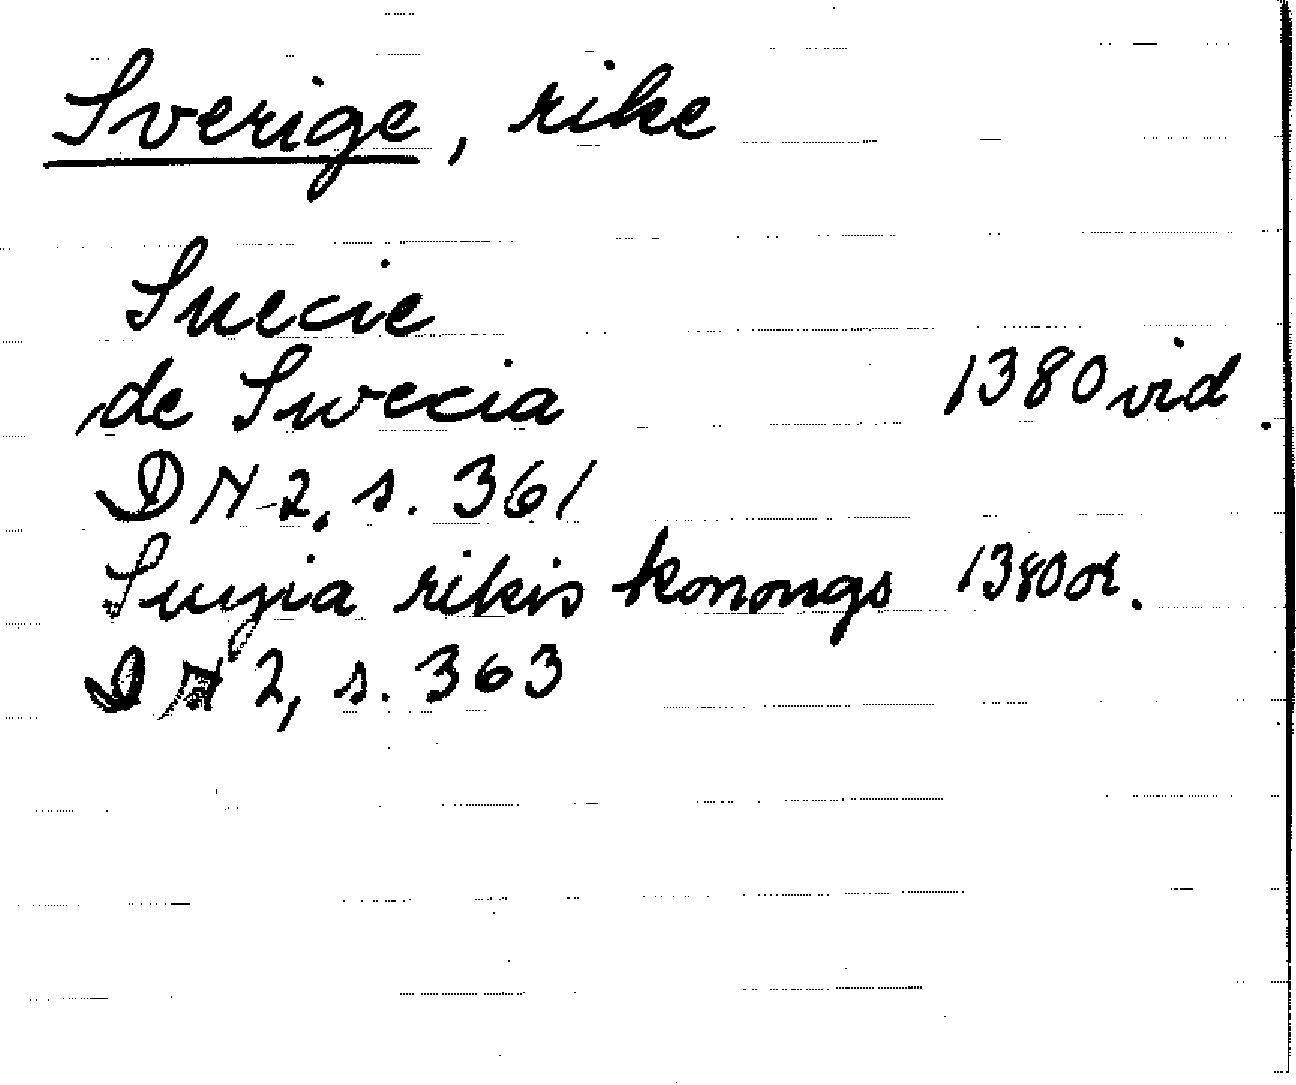 Sverige, rike
Suecie
de Swecia 1380 vid.
DN 2, s. 361
Suyia rikis konongs 1380 or.
DN 2, s. 363